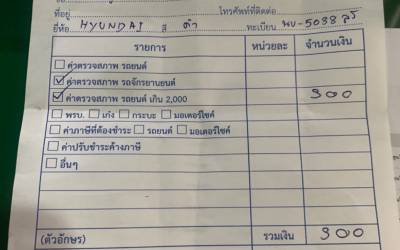 ที่อยู่ โทรศัพท์ที่ติดต่อ
ยี่ห้อ HYUNDAI สี ดำ ทะเบียน นบ-5038
รายการ หน่วยละ จำนวนเงิน
ค่าตรวจสภาพ รถยนต์
ค่าตรวจสภาพ รถจักรยานยนต์
ค่าตรวจสภาพ รถยนต์ เกิน 2,000 300
พรบ. เก๋ง กระบะ มอเตอร์ไซค์
ค่าภาษีที่ต้องชำระ รถยนต์ มอเตอร์ไซค์
ค่าปรับชำระค้างภาษี
อื่นๆ
(ตัวอักษร) รวมเงิน 300